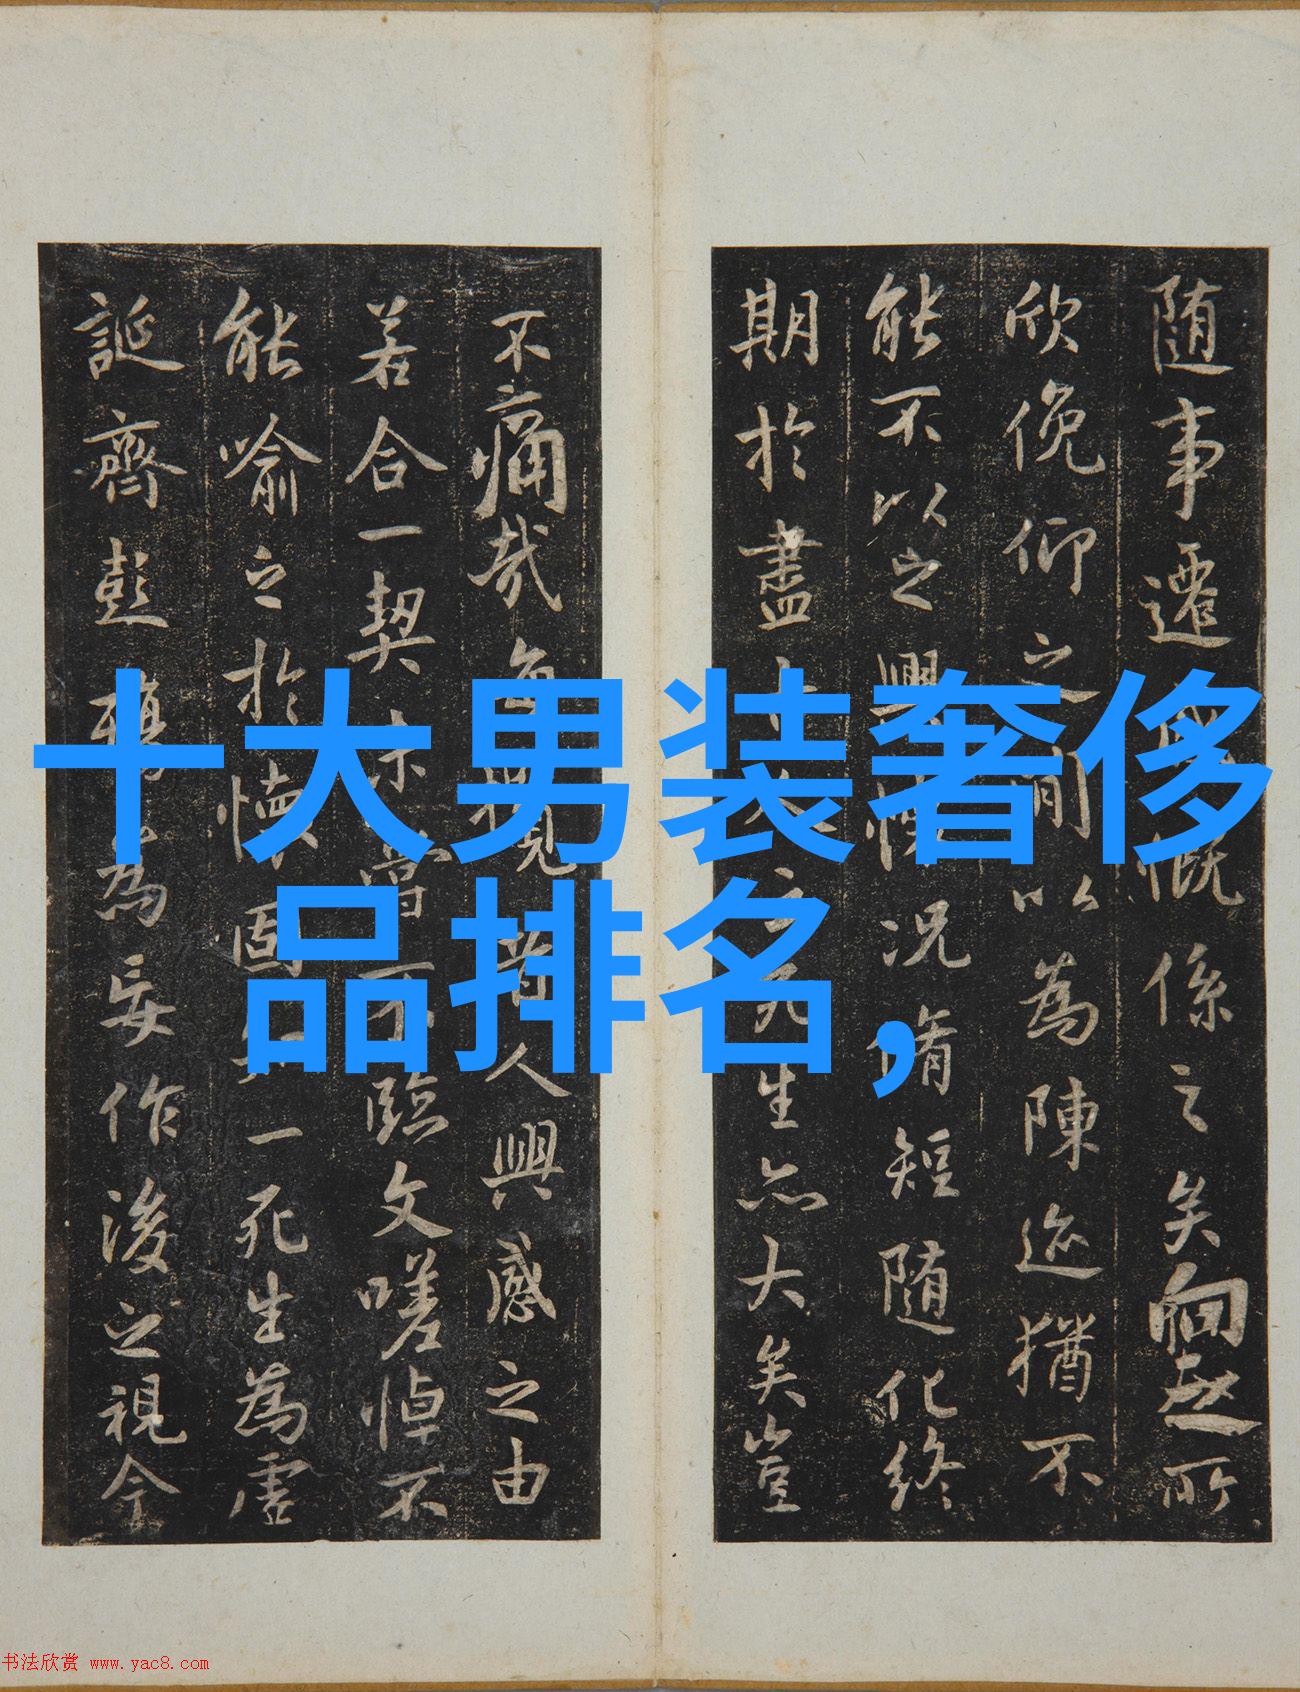 随事遷感慨係之矣向之所
欣俛仰之閒以為陳迹猶不
能不以之興懷況脩短随化終
期於盡古人云死生亦大矣豈
不痛哉每攬昔人興感之由
若合一契未嘗不臨文嗟悼不
能喻之於懷固知一死生為虛
誕齊彭殤為妄作後之視今
十大男装奢侈
品排名,
书法欣赏 www.yac8.com